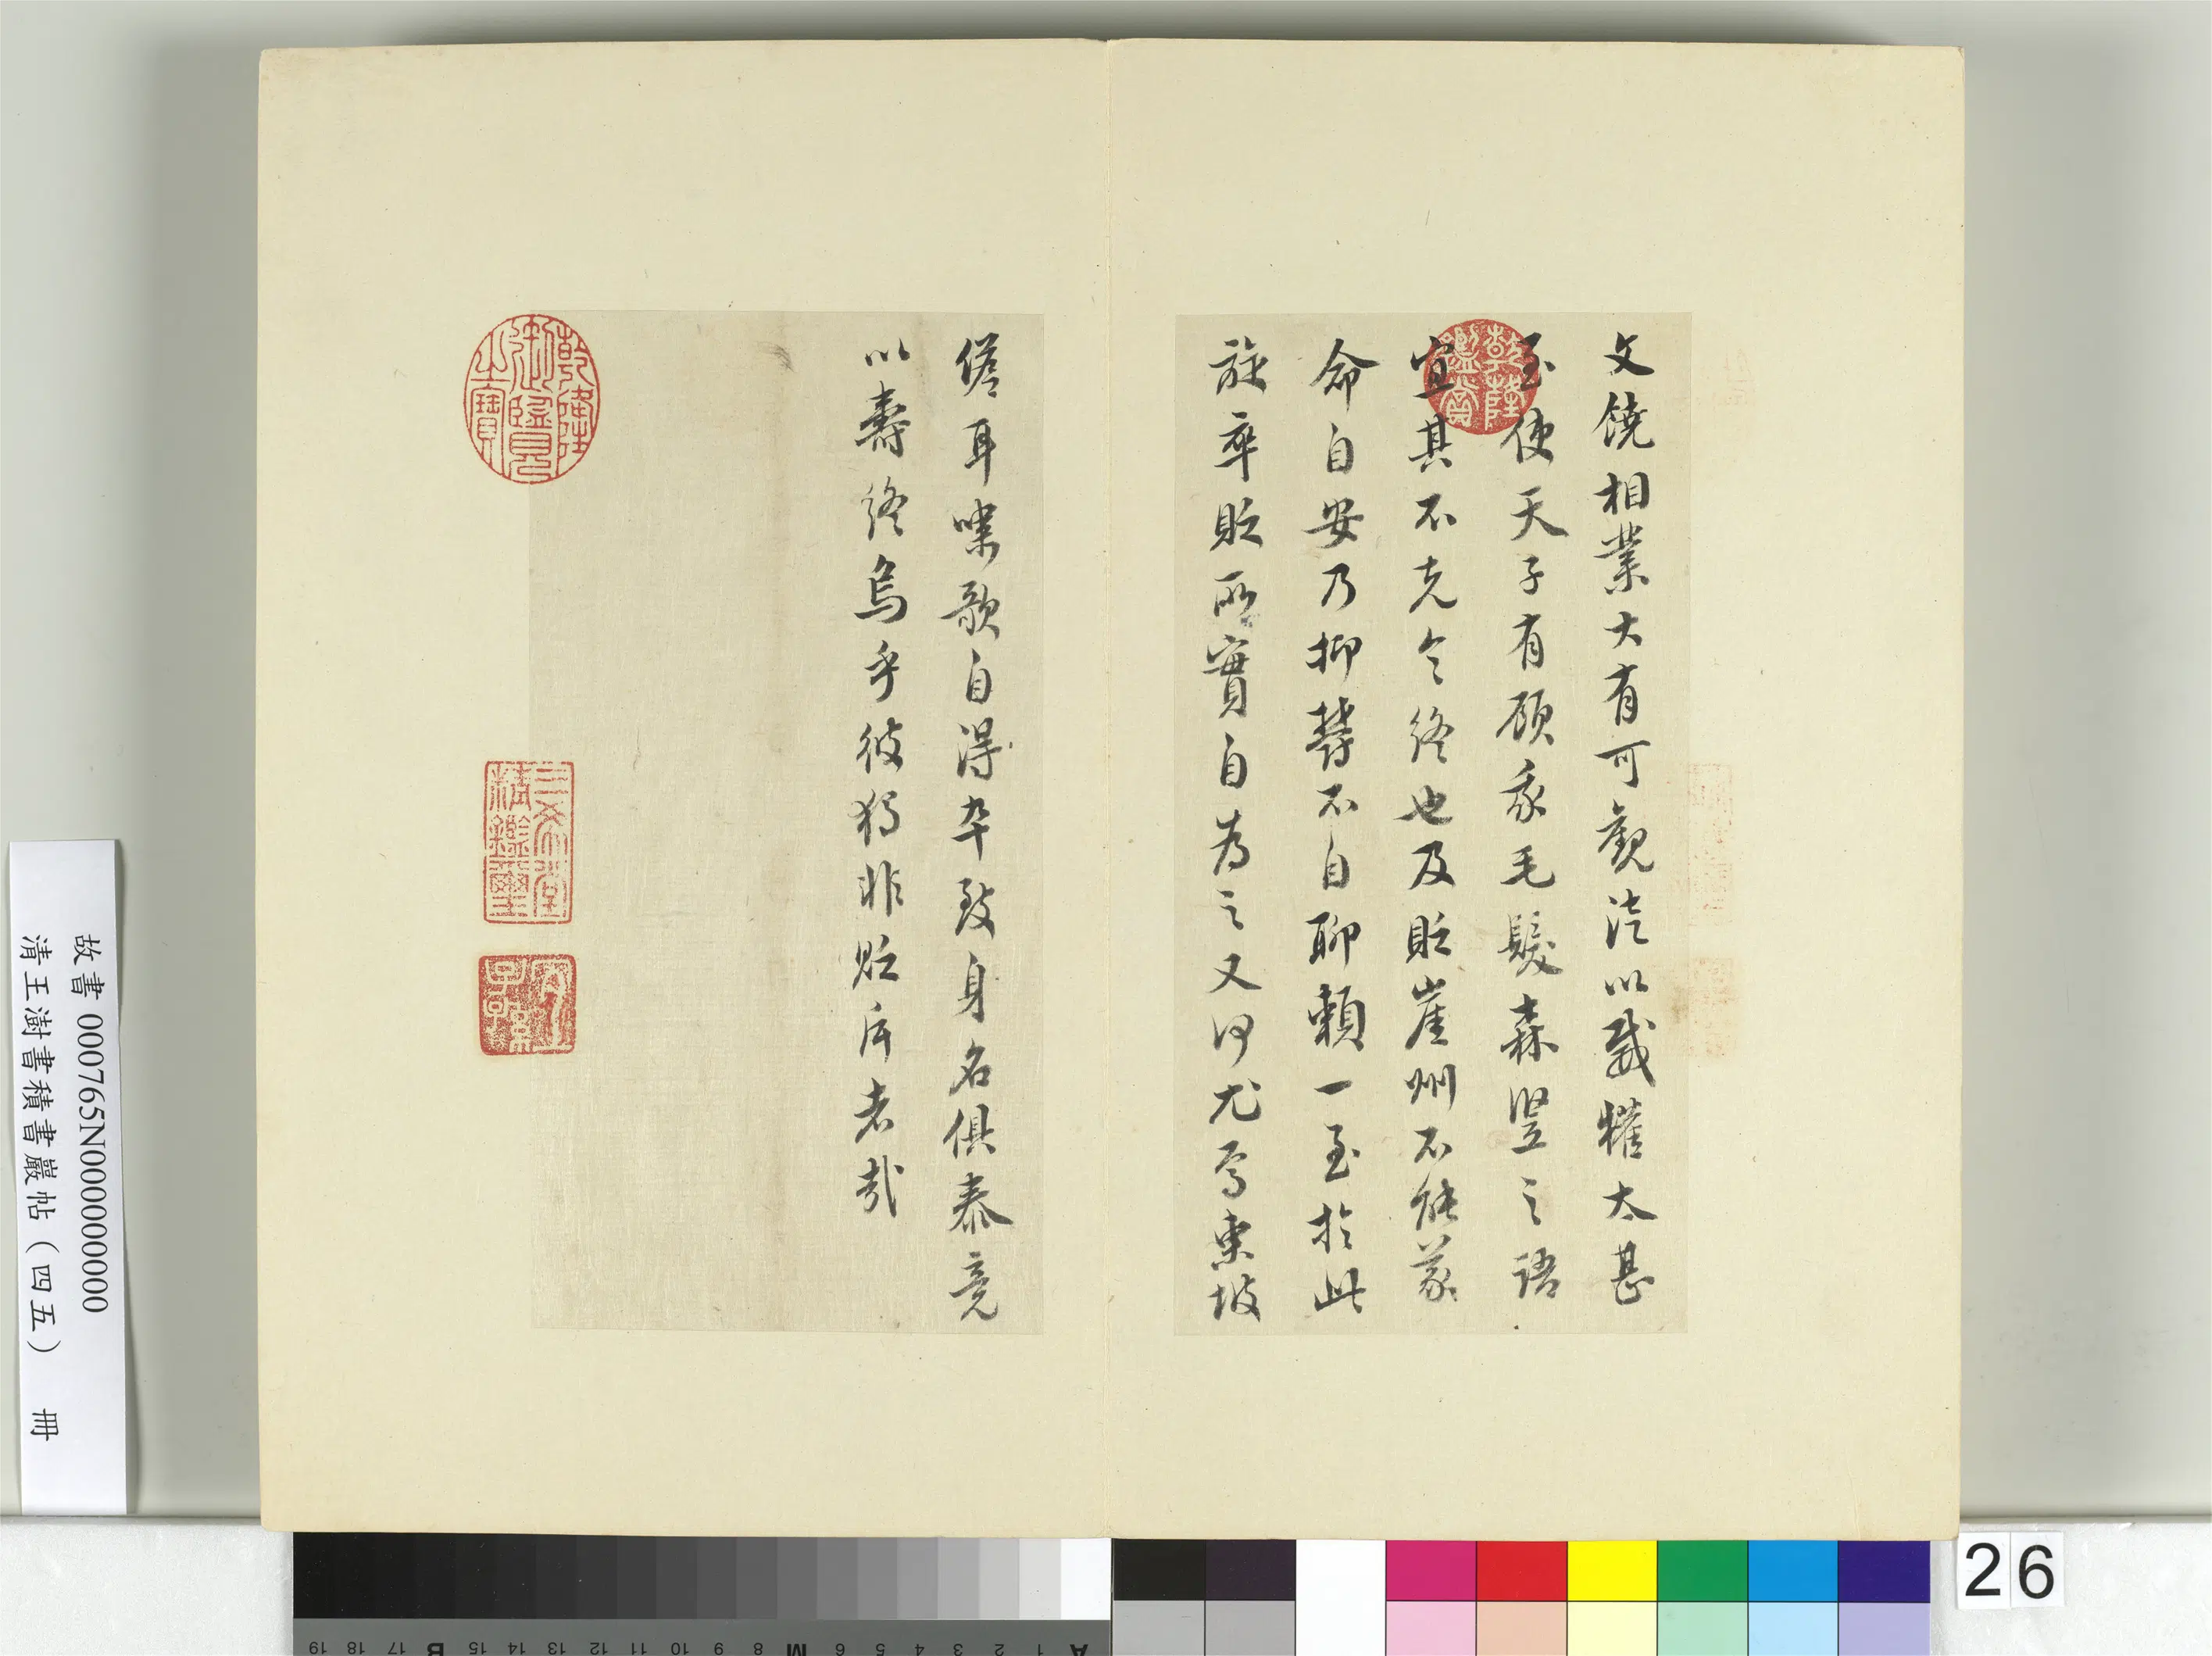 文饒相業大有可觀従以戲權太甚
至使天子有顧我毛髮森竪之語
宜其不克令終也及貶崖州不能蒙
命自安乃抑鬱不自聊賴一至於此
旋卒貶所實自為之又何尤焉東坡
儋耳嘯歌自得卒致身名俱泰竟
以壽終烏乎彼獨非貶斥者哉
乾隆鑑賞
乾隆御覽之寶
三希堂精鑑璽
宜子孫
故書 000765N000000000
清王澍書積書巖帖（四五） 冊
26
A 1 2 3 4 5 6 M 8 9 10 11 12 13 14 15 B 17 18 19